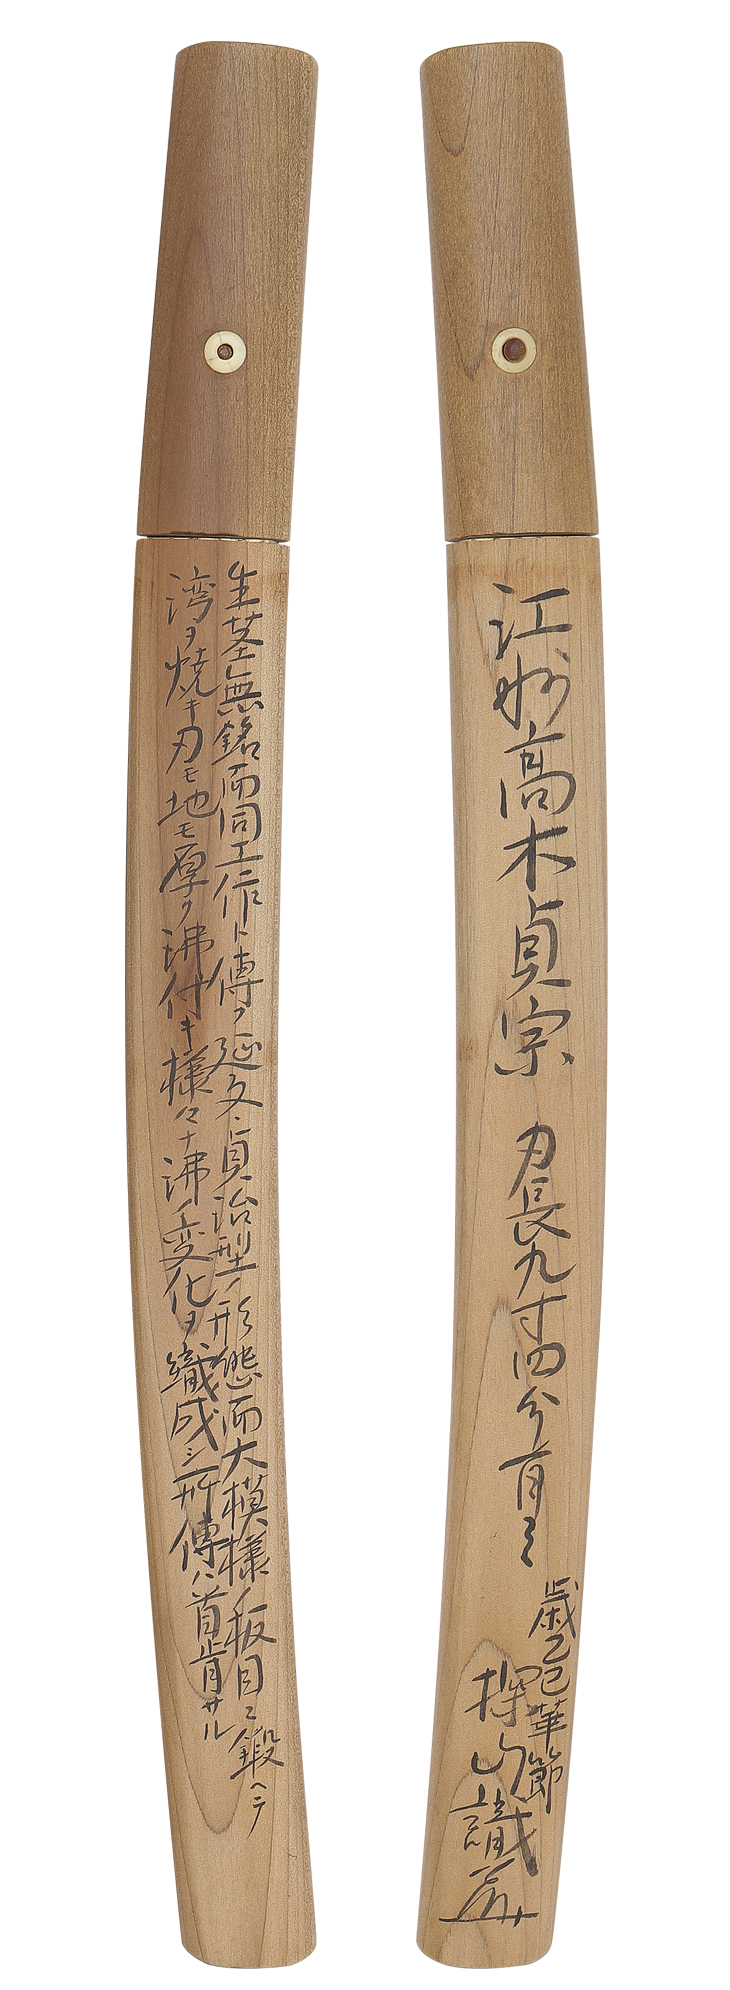 江州高木貞宗 刃長九寸四分有之
歳乙巳華節
探山識
生茎無銘而同工作ト傳フ延文、貞治型ノ形態而大模様ノ板目ニ鍛ヘテ
湾ヲ焼キ刃モ地モ厚ク沸付キ様々ナ沸ノ変化ヲ織成シ所傳ハ首肯サル